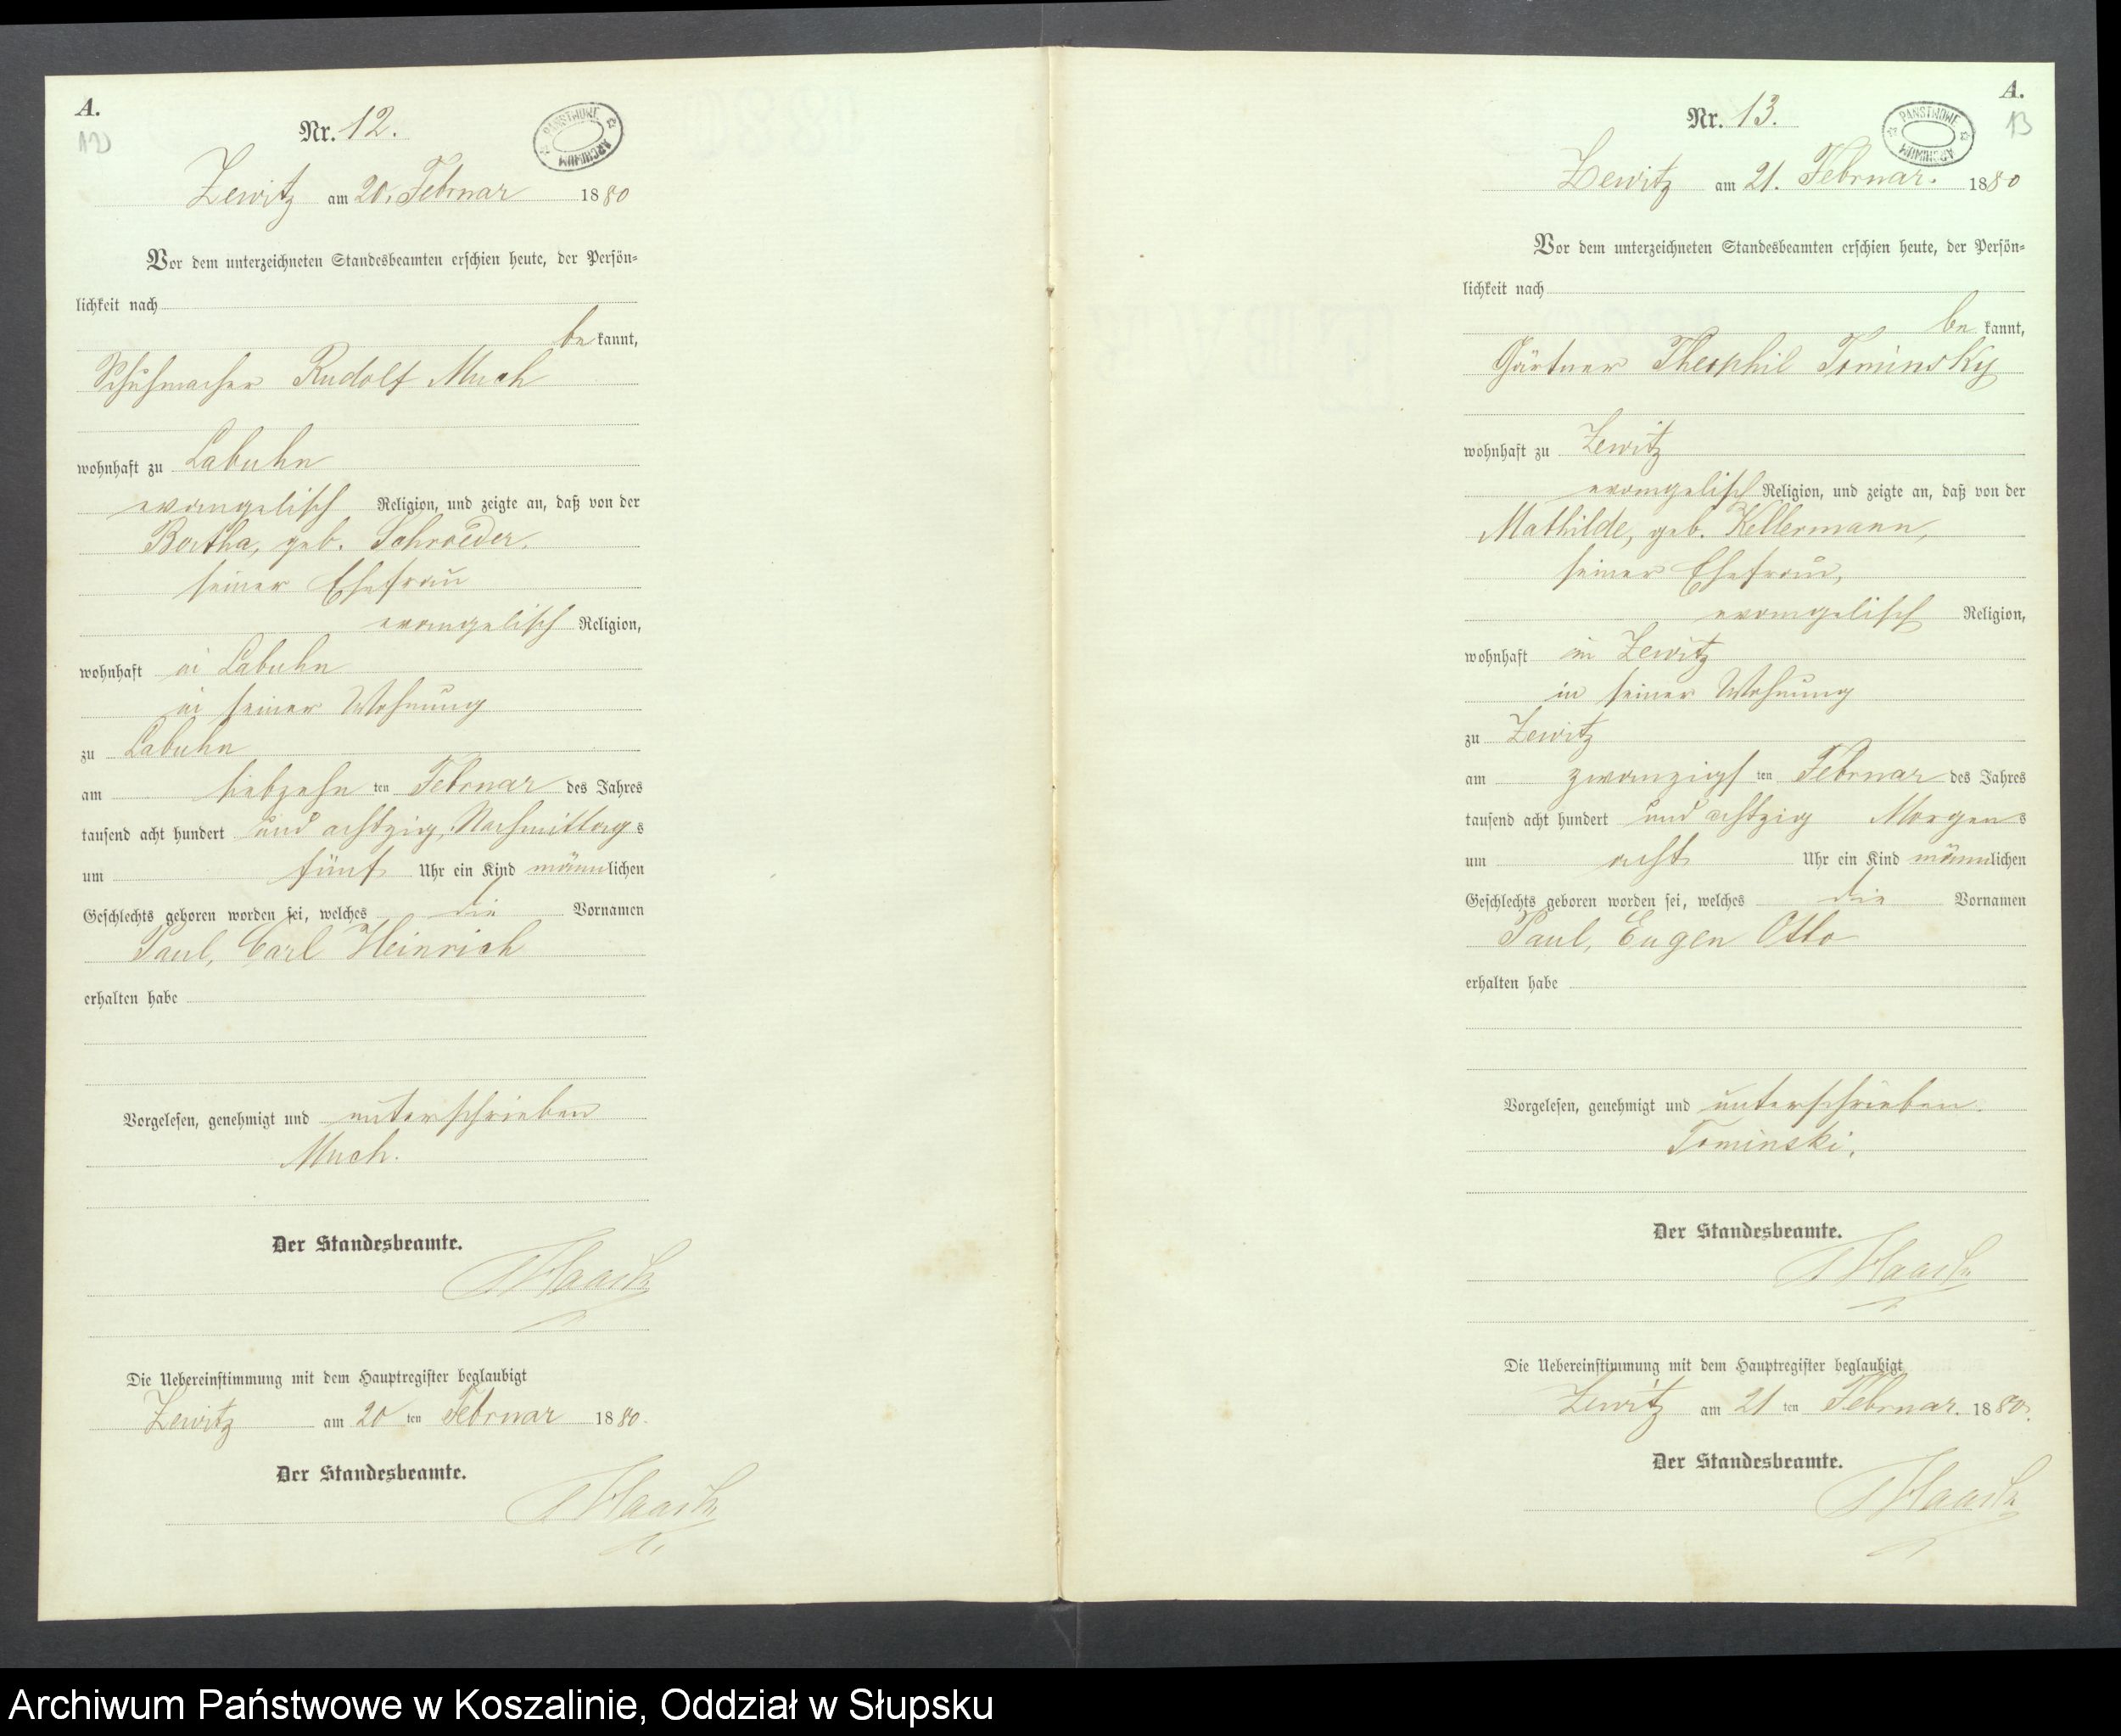 A.
12
Nr. 12.
PAŃSTWOWE ARCHIWUM
Zewitz am 20. Februar 1880
Vor dem unterzeichneten Standesbeamten erschien heute, der Persön-
lichkeit nach
be kannt,
Schuhmacher Rudolf Much
wohnhaft zu Labuhn
evangelisch Religion, und zeigte an, daß von der
Bertha, geb. Schroeder,
seiner Ehefrau
evangelisch Religion,
wohnhaft in Labuhn
in seiner Wohnung
zu Labuhn
am siebzehn ten Februar des Jahres
tausend acht hundert und achtzig, Nachmittag s
um fünf Uhr ein Kind männlichen
Geschlechts geboren worden sei, welches die Vornamen
Paul, Carl Heinrich
erhalten habe
Vorgelesen, genehmigt und unterschrieben
Much.
Der Standesbeamte.
Die Uebereinstimmung mit dem Hauptregister beglaubigt
Zewitz am 20 ten Februar 1880.
Der Standesbeamte.
A.
13
Nr. 13.
PAŃSTWOWE ARCHIWUM
Zewitz am 21. Februar. 1880
Vor dem unterzeichneten Standesbeamten erschien heute, der Persön-
lichkeit nach
be kannt,
Gärtner Theophil Tominsky
wohnhaft zu Zewitz
evangelisch Religion, und zeigte an, daß von der
Mathilde, geb. Kellermann,
seiner Ehefrau,
evangelisch Religion,
wohnhaft in Zewitz
in seiner Wohnung
zu Zewitz
am zwanzigs ten Februar des Jahres
tausend acht hundert und achtzig Morgen s
um acht Uhr ein Kind männlichen
Geschlechts geboren worden sei, welches die Vornamen
Paul, Eugen Otto
erhalten habe
Vorgelesen, genehmigt und unterschrieben.
Tominski.
Der Standesbeamte.
Die Uebereinstimmung mit dem Hauptregister beglaubigt
Zewitz am 21 ten Februar. 1880.
Der Standesbeamte.
Archiwum Państwowe w Koszalinie, Oddział w Słupsku